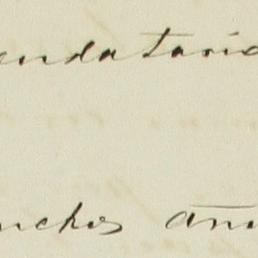 endatario
nchos añ